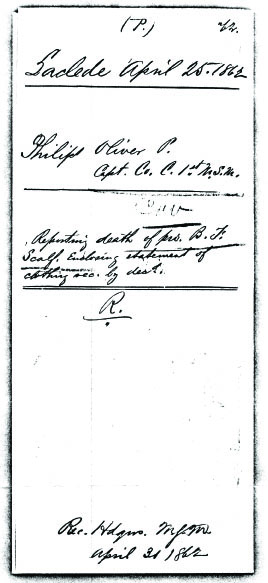 (P.) 62.
Laclede April 25. 1862
Philips Oliver P.
Capt. Co. C. 1st M.S.M.
Reporting death of prs. B. F.
Scalf. Enclosing statement of
clothing rec. by decd.
R.
Rec. Hdqrs.
April 30 1862